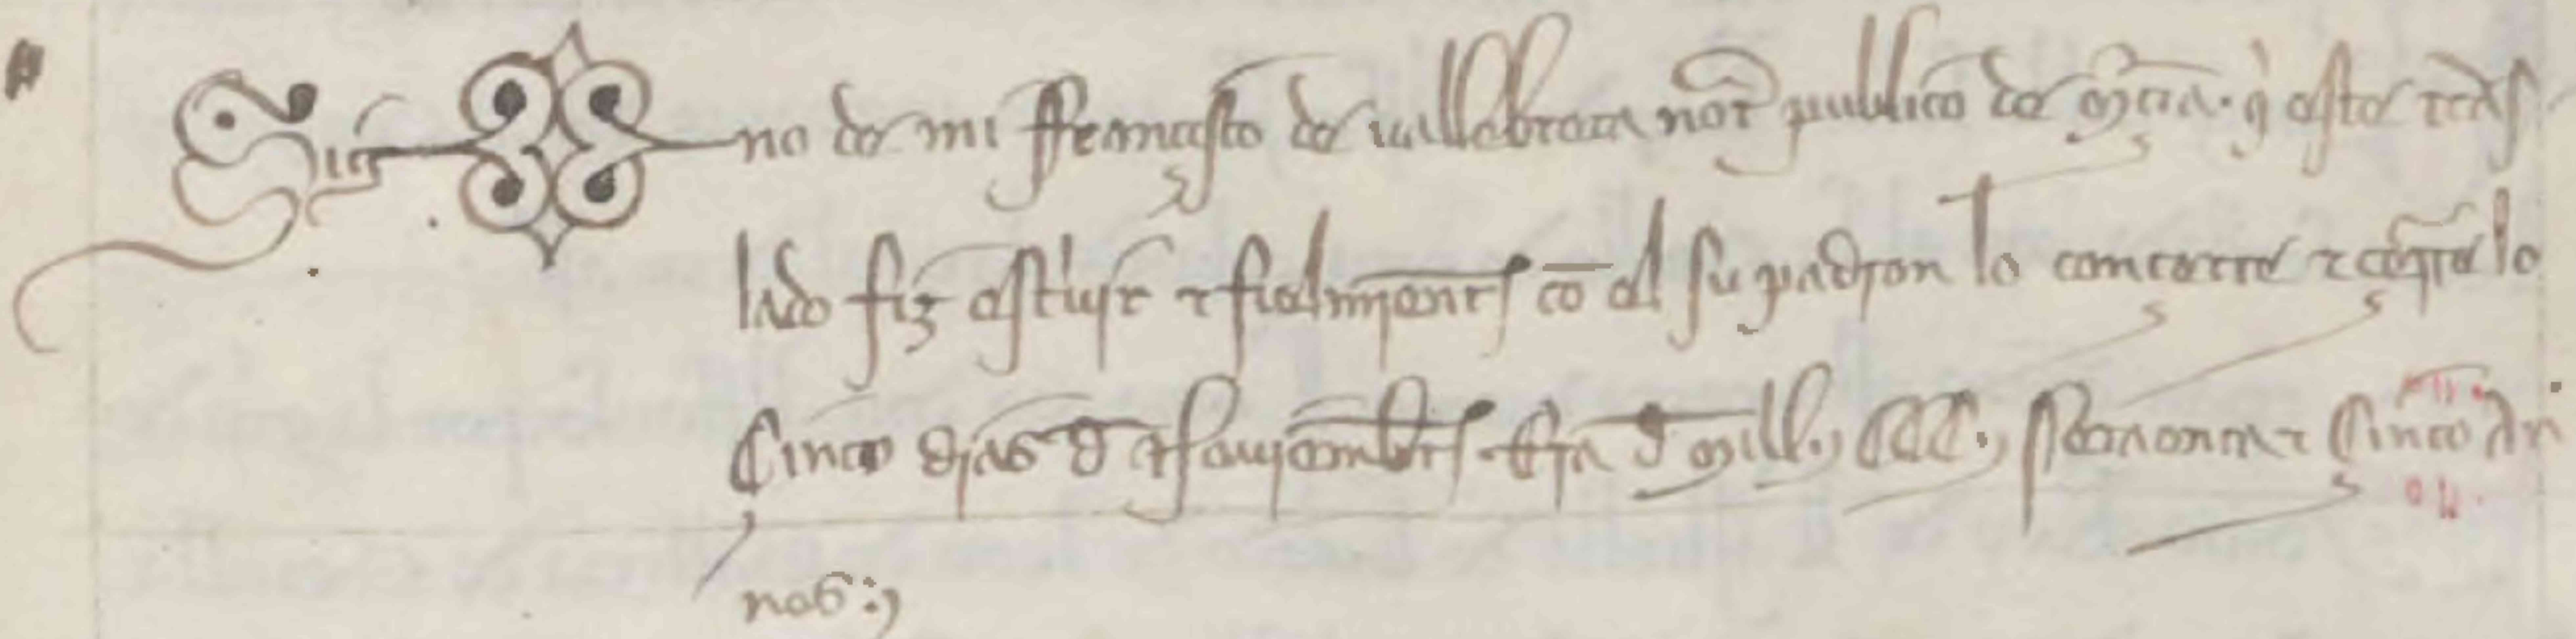 Sig no de mi ffrancisco de vallebrera not publico de mcia. q este tras
lado fiz escriuir τ fielmient co el su padron lo concerte τ cerre lo
Cinco dias d nouiembre Era d mill, CCC, setaenta τ Cinco an
nos:,